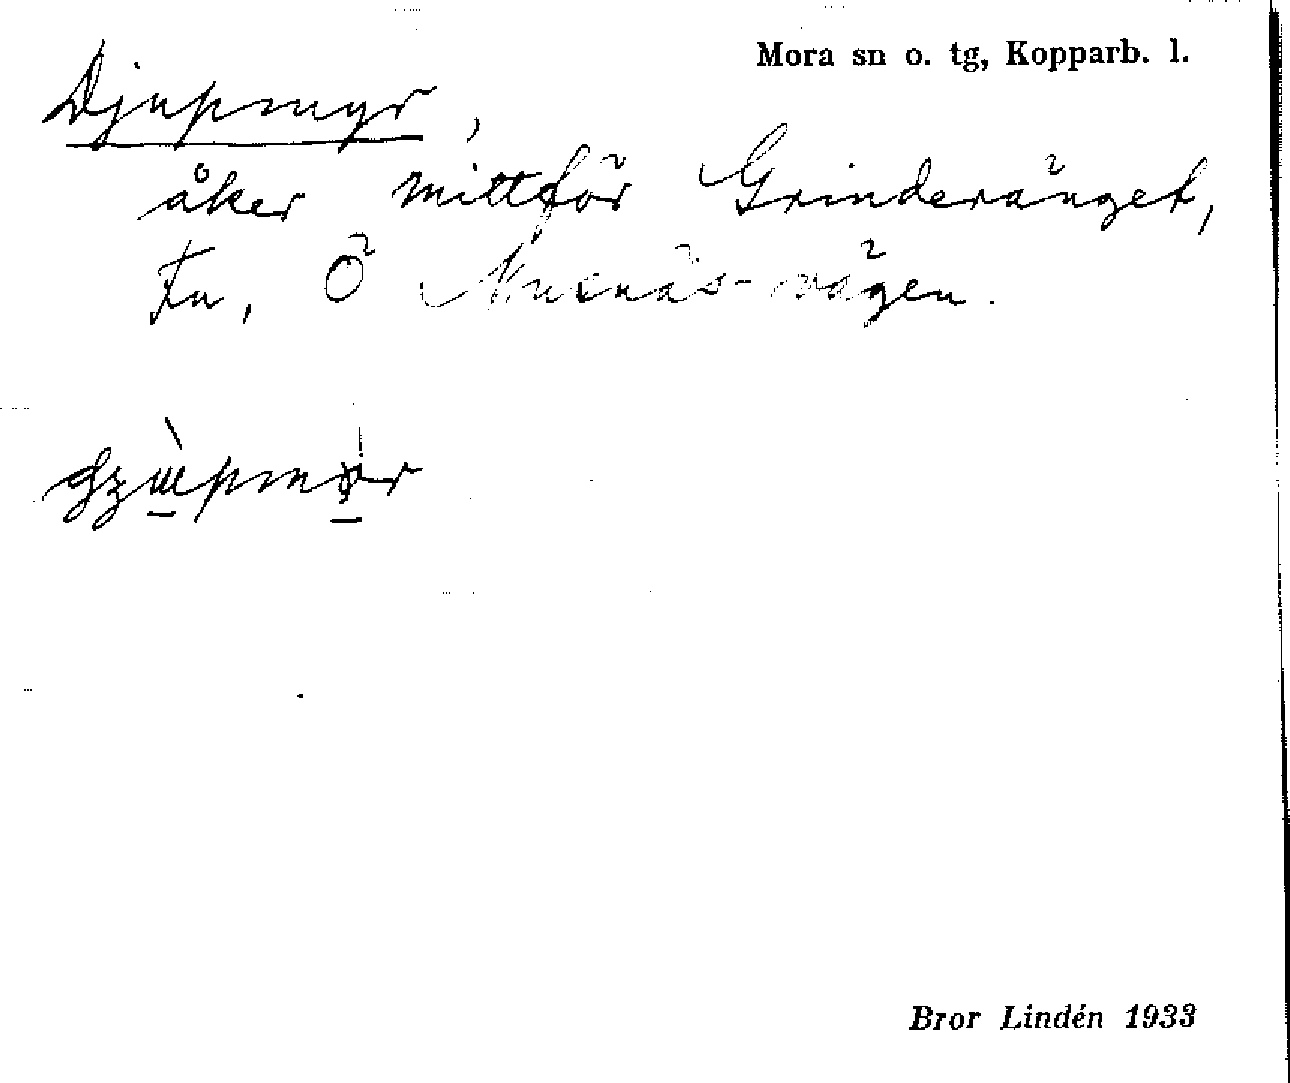 Mora sn o. tg, Kopparb. l.
Djupmyr,
åker mittför Grinderänget,
Fu, Ö Nusnäs-vägen.
Bror Lindén 1933